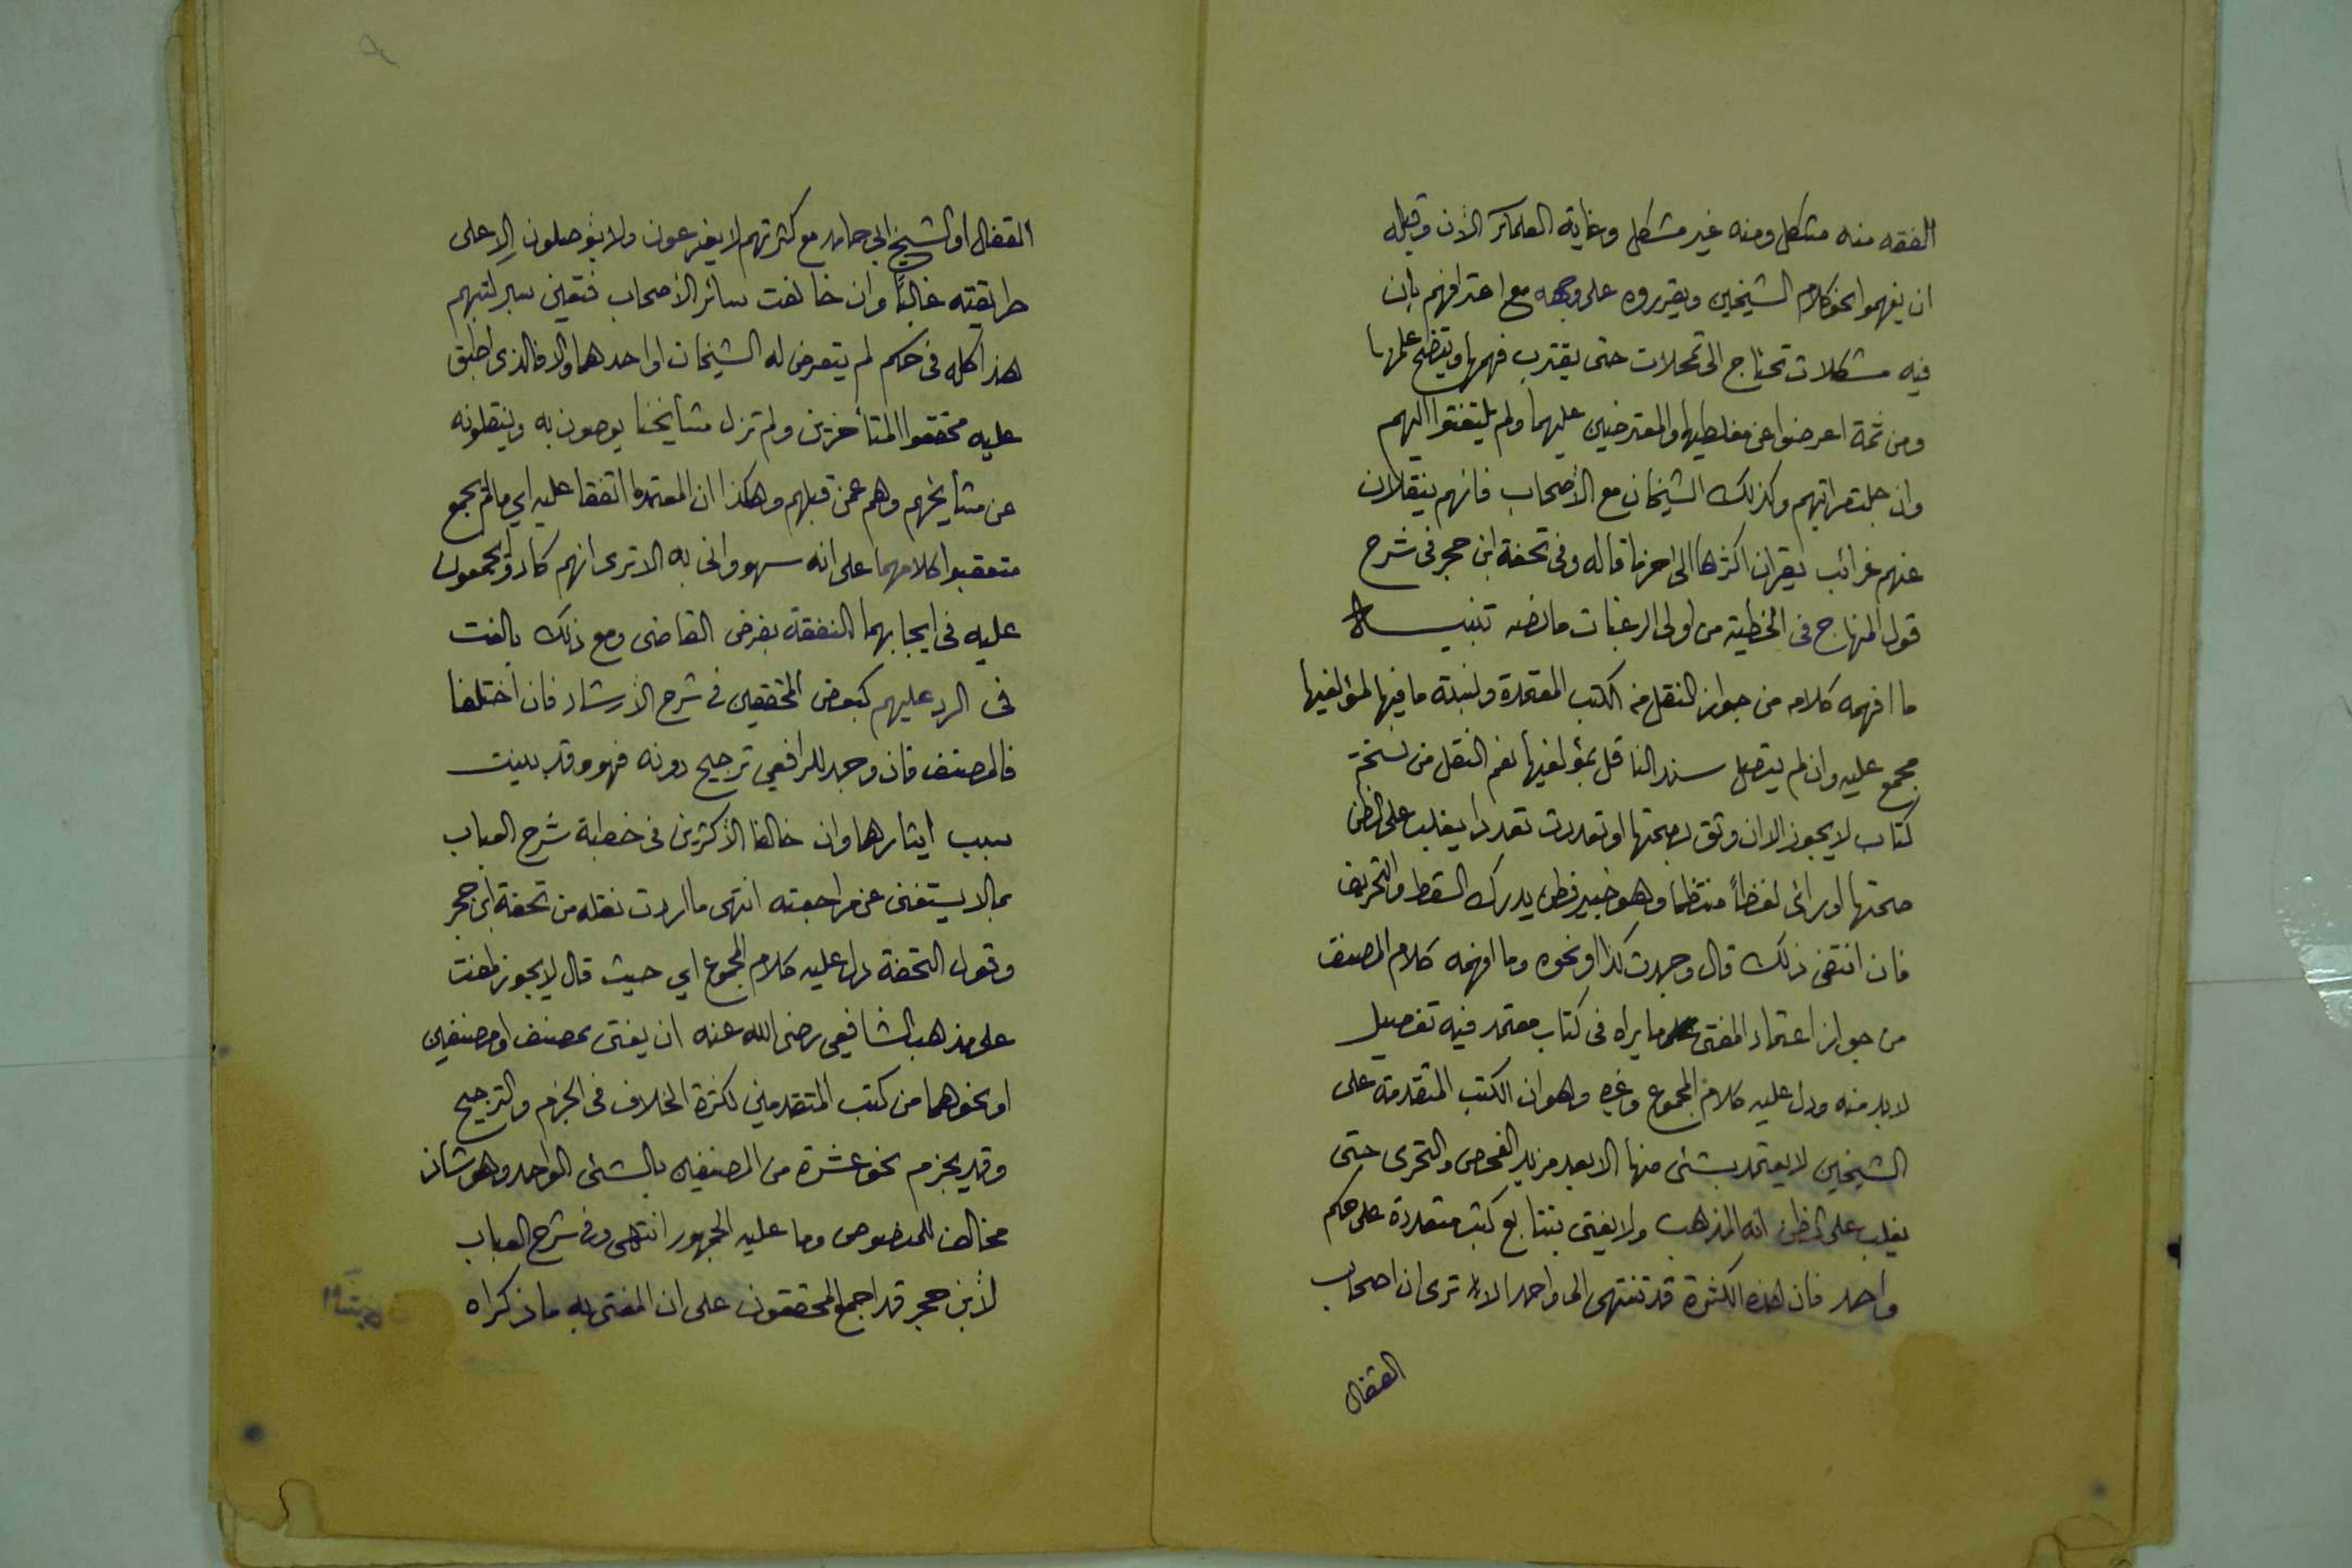 الفقه منه مشكل ومنه غير مشكل وغاية العلماء الآن وقبله
ان يفهموا نحو كلام الشيخين ويقرروه على وجهه مع اعترافهم بان
فيه مشكلات تحتاج الى تمحلات حتى يقترب فهمها ويتضح علمها
ومن ثمة اعرضوا عن مغلطيها والمعترضين عليهما ولم يلتفتوا اليهم
وان جلت مراتبهم وكذلك الشيخان مع الأصحاب فانهم ينقلان
عنهم غرائب يقران اكثرها الى اخر ما قاله وفى تحفة ابن حجر فى شرح
قول المنهاج فى الخطبة من اولى الرغبات ما نصه تنبيه
ما افهمه كلامه من جواز النقل من الكتب المعتمدة ونسبة ما فيها لمؤلفيها
مجمع عليه وان لم يتصل سند الناقل بمؤلفيها نعم النقل من نسخة
كتاب لا يجوز الا ان وثق بصحتها او تعددت تعددا يغلب على الظن
صحتها او رائ لفظاً منتظما وهو خبير فطن يدرك السقط والتحريف
فان انتفى ذلك قال وجدت كذا او نحوه وما افهمه كلام المصنف
من جواز اعتماد المفتى ما يراه فى كتاب معتمد فيه تفصيل
لا بد منه ودل عليه كلام المجموع وغيره وهو ان الكتب المتقدمة على
الشيخين لا يعتمد بشئ منها الا بعد مزيد الفحص والتحرى حتى
يغلب على الظن انه المذهب ولا يغتر بتتابع كتب متعددة على حكم
واحد فان هذه الكثرة قد تنتهى الى واحد الا ترى ان اصحاب
القفال
القفال او الشيخ ابى حامد مع كثرتهم لا يفرعون ولا يؤصلون الا على
طريقته غالباً وان خالفت سائر الأصحاب فتعين سبر كتبهم
هذا كله فى حكم لم يتعرض له الشيخان او احدهما والا فالذى اطبق
عليه محققوا المتأخرين ولم تزل مشايخنا يوصون به وينقلونه
عن مشايخهم وهم عمن قبلهم وهكذا ان المعتمد ما اتفقا عليه اي ما لم يجمع
متعقبوا كلامهما على انه سهو وانى به الا ترى انهم كادوا يجمعون
عليه فى ايجابهما النفقة بفرض القاضى ومع ذلك بالغت
فى الرد عليهم كبعض المحققين فى شرح الأرشاد فان اختلفا
فالمصنف فان وجد للرافعي ترجيح دونه فهو وقد بينت
سبب ايثارهما وان خالفا الأكثرين فى خطبة شرح العباب
بما لا يستغنى عن مراجعته انتهى ما اردت نقله من تحفة ابن حجر
وقول التحفة دل عليه كلام المجموع اي حيث قال لا يجوز لمفت
على مذهب الشافعي رضى الله عنه ان يفتى بمصنف او مصنفين
او نحوهما من كتب المتقدمين لكثرة الخلاف فى الجزم والترجيح
وقد يجزم نحو عشرة من المصنفين بالشئ الواحد وهو شاذ
مخالف للمنصوص وما عليه الجمهور انتهى وفى شرح العباب
لأبن حجر قد اجمع المحققون على ان المفتى به ما ذكراه